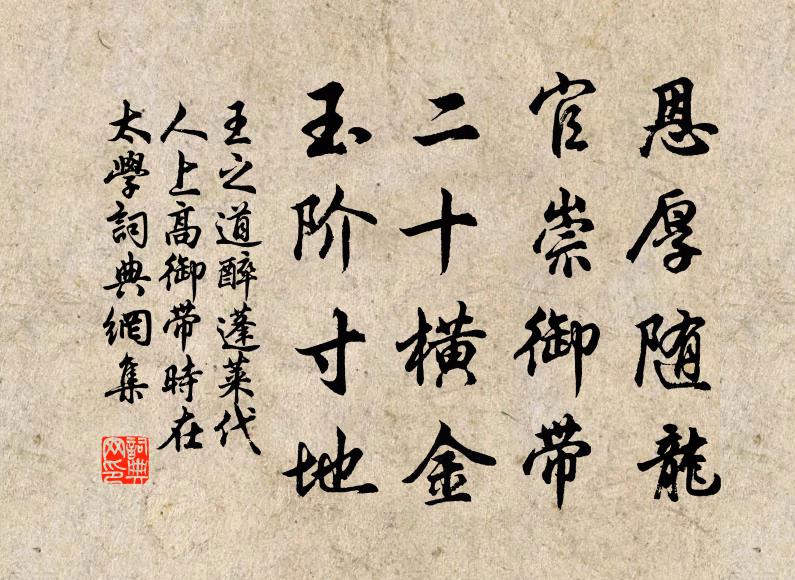 恩厚随龍
官崇御带
二十横金
玉阶寸地
王之道醉蓬莱代
人上高御带時在
太學詞典網集
詞典
网印